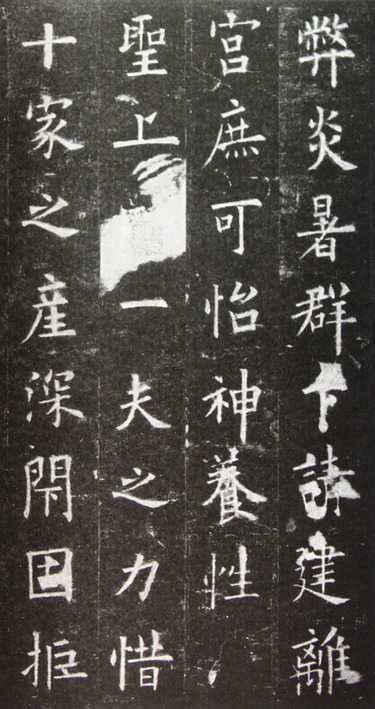 弊炎暑群下請建離
宮庶可怡神養性
聖上一夫之力惜
十家之産深閇固拒